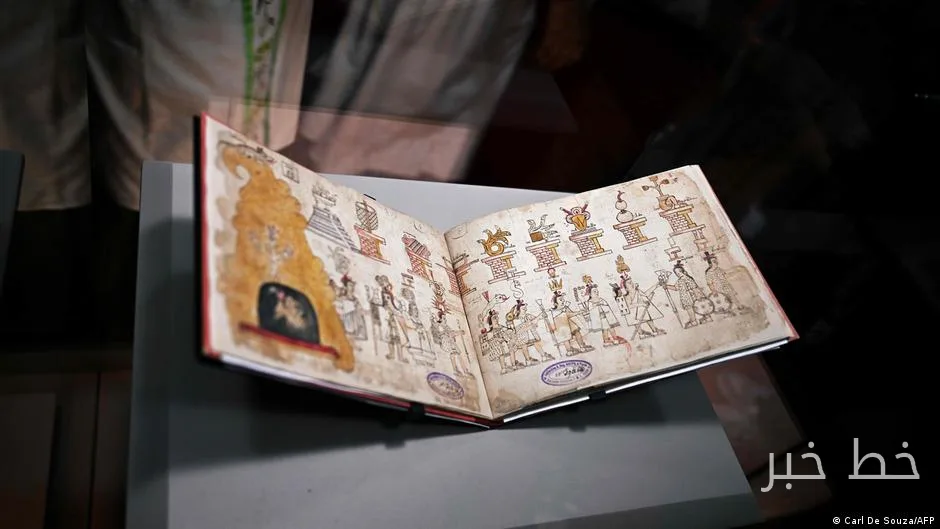 خط خبر
© Carl De Souza/AFP